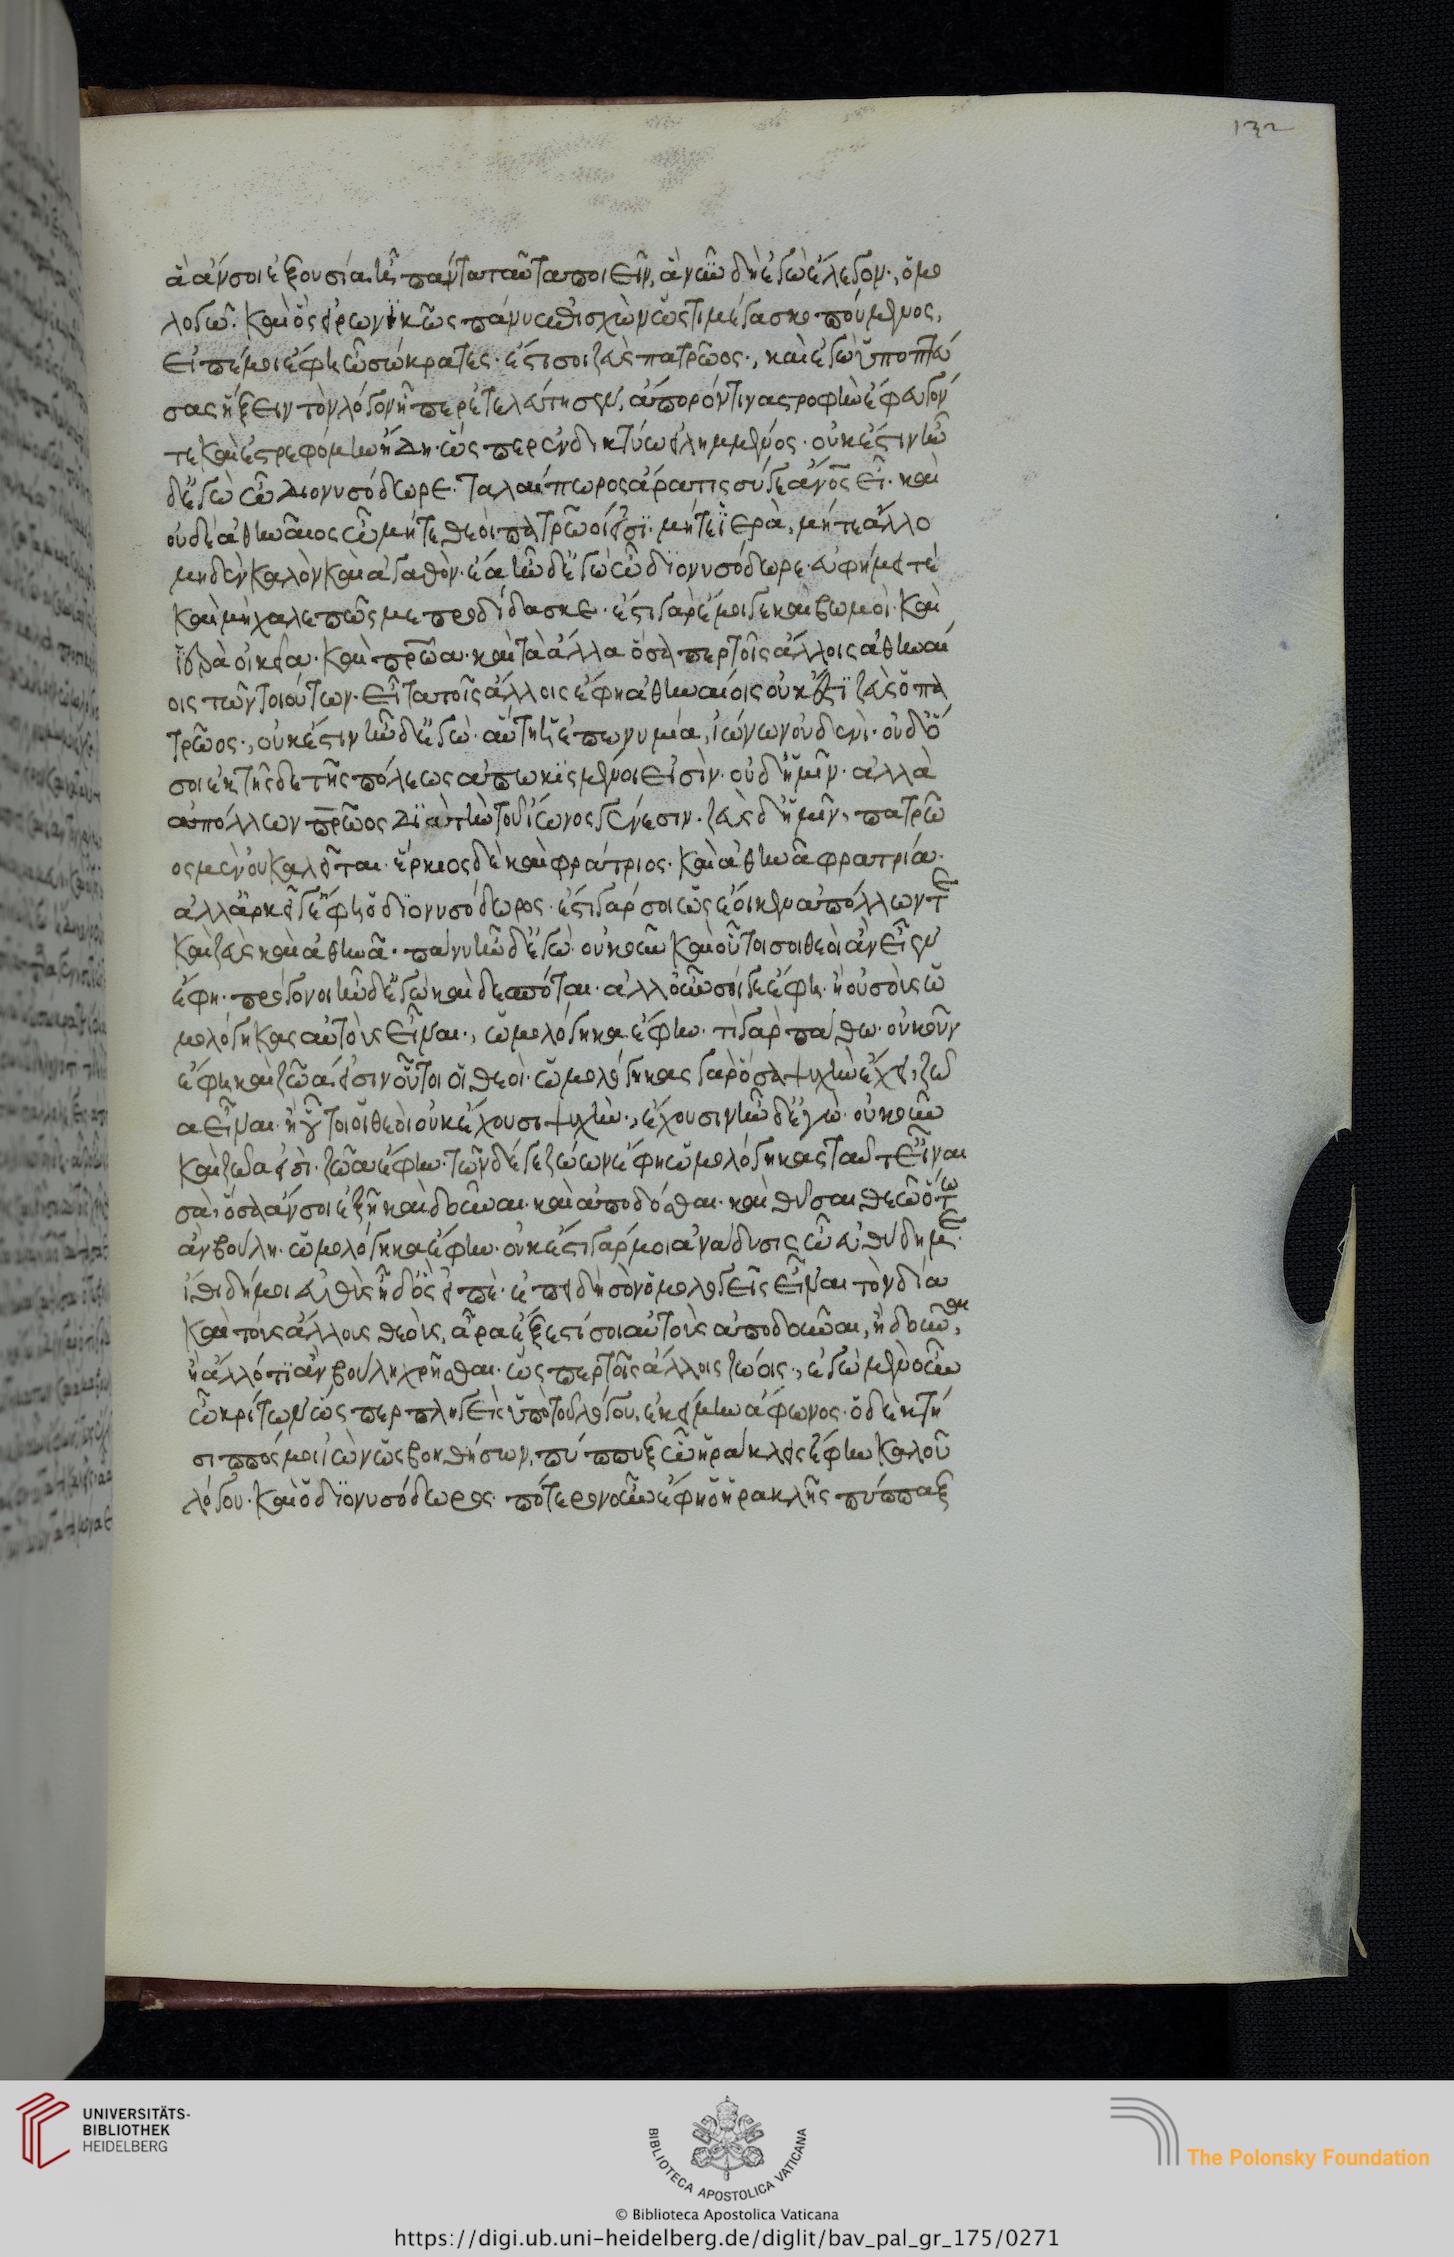 132
ἃ ἄν σοι ἐξουσία ἦ πάντα ταῦτα ποιεῖν, ἃ νῦν δὴ ἐγὼ ἔλεγον·, ὁμο
λογῶ. καὶ ὃς εἰρωνικῶς πάνυ ἐπισχὼν ὥς τι μέγα σκοπούμενος,
εἰπέ μοι ἔφη ὦ σώκρατες· ἔστι σοι ζεὺς πατρῶος·, καὶ ἐγὼ ὑποπτεύ
σας ἥξειν τὸν λόγον ἧπερ ἐτελεύτησεν, ἄπορόν τινα στροφὴν ἔφευγόν
τε καὶ ἐστρεφόμην ἤδη· ὥσπερ ἐν δικτύω εἰλημμένος· οὐκ ἔστιν ἦν
δ' ἐγὼ ὦ διονυσόδωρε· ταλαίπωρος ἄρα τις σύ γε ἄνος εἶ· καὶ
οὐδὲ ἀθηναῖος ὦ μήτε θεοὶ πατρῶοί εἰσι· μήτε ἱερὰ, μήτε ἄλλο
μηδὲν καλὸν καὶ ἀγαθόν· ἔα ἦν δ' ἐγὼ ὦ διονυσόδωρε· εὐφήμει τέ
καὶ μὴ χαλεπῶς με προδίδασκε· ἔστι γὰρ ἔμοιγε καὶ βωμοὶ· καὶ
ἱερὰ οἰκεῖα· καὶ πρῶα· καὶ τὰ ἄλλα ὅσα περ τοῖς ἄλλοις ἀθηναί
οις τῶν τοιούτων· εἶτα τοῖς ἄλλοις ἔφη ἀθηναίοις οὐκ ἔστι ζεὺς ὁ πα
τρῶος·, οὐκ ἔστιν ἦν δ' ἐγὼ· αὕτη ἡ ἐπωνυμία, ἰώνων οὐδενὶ· οὐδ' ὅ
σοι ἐκ τῆσδε τῆς πόλεως ἀπωκισμένοι εἰσὶν· οὐδ' ἡμῖν· ἀλλὰ
ἀπόλλων πρῶος διὰ τὴν τοῦ ἴωνος γένεσιν· ζεὺς δ' ἡμῖν, πατρῶ
ος μὲν οὐ καλεῖται· ἕρκιος δὲ καὶ φράτριος· καὶ ἀθηνᾶ φρατρία·
ἀλλ' ἀρκεῖ γε ἔφη ὁ διονυσόδωρος· ἔστι γάρ σοι ὡς ἔοικεν ἀπόλλων τε
καὶ ζεὺς καὶ ἀθηνᾶ· πάνυ ἦν δ' ἐγὼ· οὐκοῦν καὶ οὗτοι σοι θεοὶ ἂν εἶεν
ἔφη· πρόγονοι ἦν δ' ἐγὼ καὶ δεσπόται· ἀλλ' οὖν σοί γε ἔφη· ἢ οὐ σοὺς ὡ
μολόγηκας αὐτοὺς εἶναι·, ὡμολόγηκα ἔφην· τί γὰρ πάθω· οὐκοῦν
ἔφη καὶ ζῶα εἰσιν οὗτοι οἱ θεοὶ· ὡμολόγηκας γὰρ ὅσα ψυχὴν ἔχει, ζῶ
α εἶναι· ἢ οὗτοι οἱ θεοὶ οὐκ ἔχουσι ψυχὴν·, ἔχουσιν ἦν δ' ἐγὼ· οὐκοῦν
καὶ ζῶα εἰσὶ· ζῶα ἔφην· τῶν δέ γε ζώων ἔφη ὡμολόγηκας ταῦτ' εἶναι
σὰ, ὅσα ἄν σοι ἐξῆ καὶ δοῦναι· καὶ ἀποδόσθαι· καὶ θῦσαι θεῶ ὅτω
ἂν βούλη· ὡμολόγηκα ἔφην· οὐκ ἔστι γάρ μοι ἀνάδυσις ὦ εὐθύδημε·
ἴθι δή μοι εὐθὺς ἦ δ' ὃς εἰπὲ· ἐπειδὴ σὸν ὁμολογεῖς εἶναι τὸν δία
καὶ τοὺς ἄλλους θεοὺς, ἆρα ἔξεστί σοι αὐτοὺς ἀποδοῦναι, ἢ δοῦναι,
ἢ ἄλλ' ὅτι ἂν βούλη χρῆσθαι· ὥσπερ τοῖς ἄλλοις ζώοις·, ἐγὼ μὲν οὖν
ὦ κρίτων ὥσπερ πληγεὶς ὑπὸ τοῦ λόγου, ἐκείμην ἄφωνος· ὁ δὲ κτή
σιππός μοι ἰὼν ὡς βοηθήσων, πύππαξ ὦ ἡράκλεις ἔφην καλοῦ
λόγου· καὶ ὁ διονυσόδωρος· πότερον οὖν ἔφη ὁ ἡρακλῆς πύππαξ
UNIVERSITÄTS-
BIBLIOTHEK
HEIDELBERG
BIBLIOTECA APOSTOLICA VATICANA
The Polonsky Foundation
© Biblioteca Apostolica Vaticana
https://digi.ub.uni-heidelberg.de/diglit/bav_pal_gr_175/0271